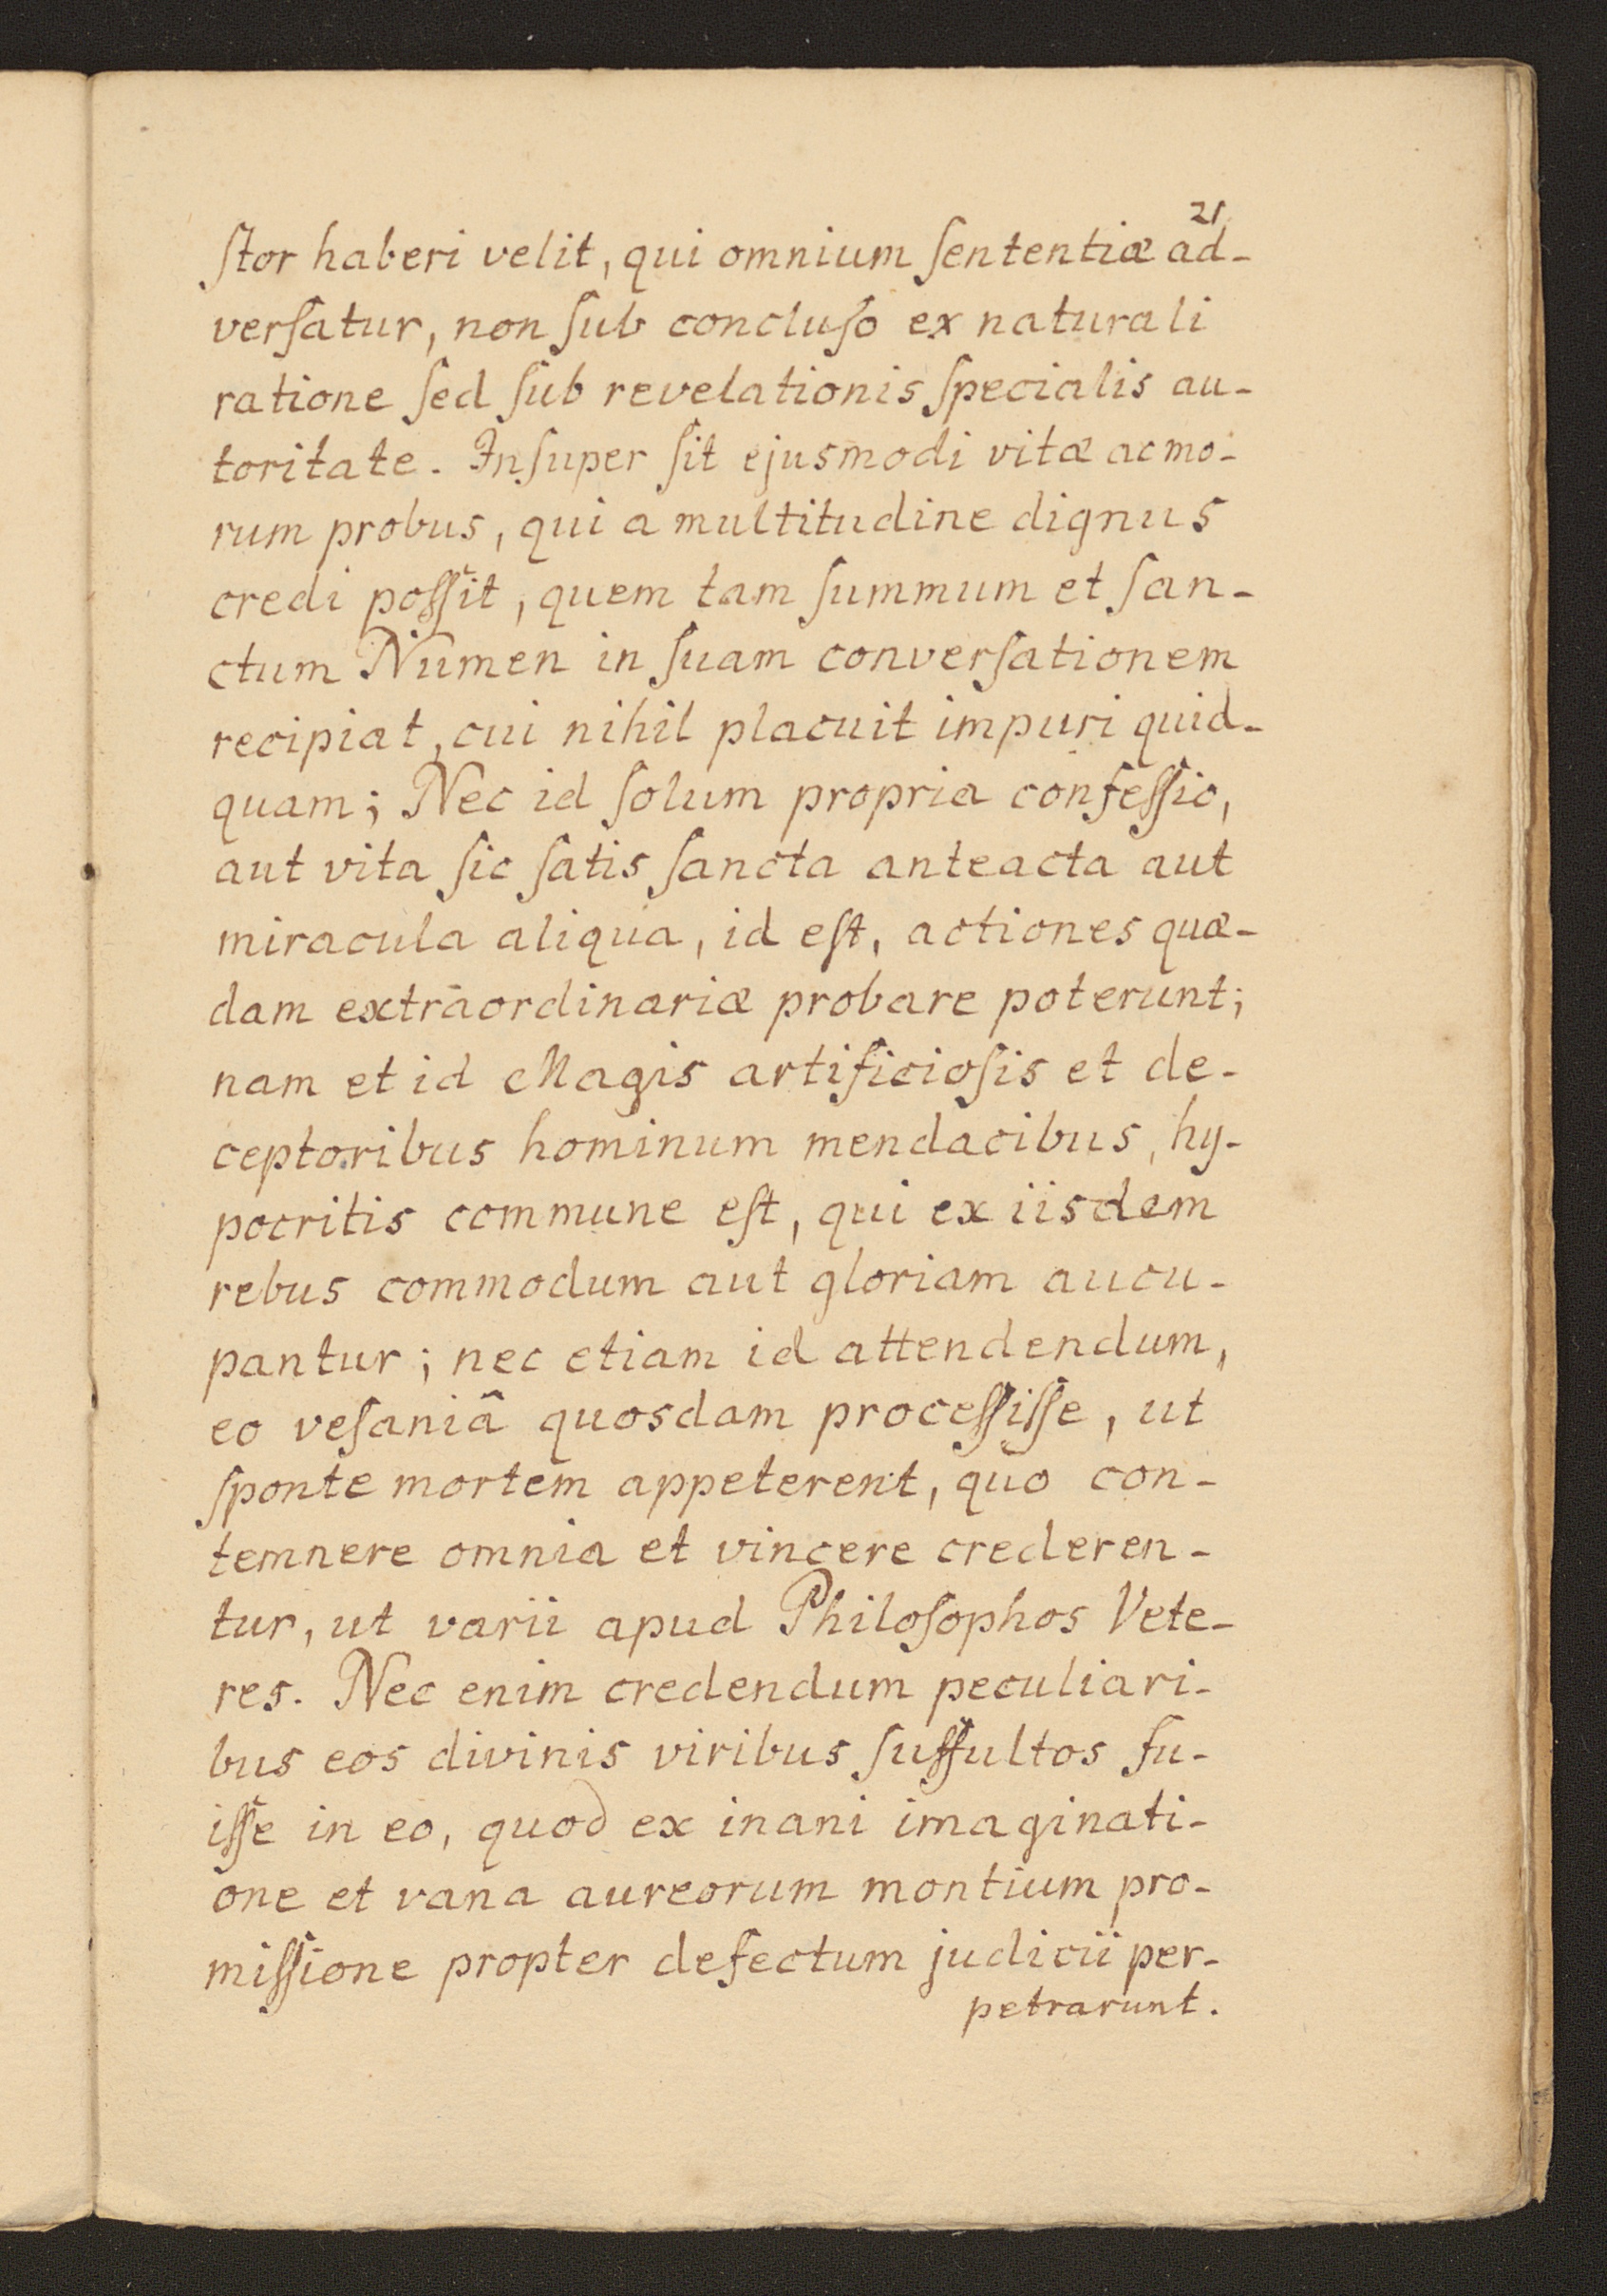 21
ſtor haberi velit, qui omnium ſententiæ ad-
verſatur, non ſub concluſo ex naturali
ratione ſed ſub revelationis ſpecialis au-
toritate. Inſuper ſit ejusmodi vitæ ac mo-
rum probus, qui a multitudine dignus
credi poſſit, quem tam ſummum et ſan-
ctum Numen in ſuam converſationem
recipiat, cui nihil placuit impuri quid-
quam; Nec id ſolum propria confeſſio,
aut vita ſic ſatis ſancta anteacta aut
miracula aliqua, id eſt, actiones quæ-
dam extraordinariæ probare poterunt;
nam et id Magis artificioſis et de-
ceptoribus hominum mendacibus, hy-
pocritis commune eſt, qui ex iisdem
rebus commodum aut gloriam aucu-
pantur; nec etiam id attendendum,
eo veſaniâ quosdam proceſſiſſe, ut
ſponte mortem appeterent, quo con-
temnere omnia et vincere crederen-
tur, ut varii apud Philoſophos Vete-
res. Nec enim credendum peculiari-
bus eos divinis viribus ſuffultos fu-
iſſe in eo, quod ex inani imaginati-
one et vana aureorum montium pro-
miſſione propter defectum judicii per-
petrarunt.